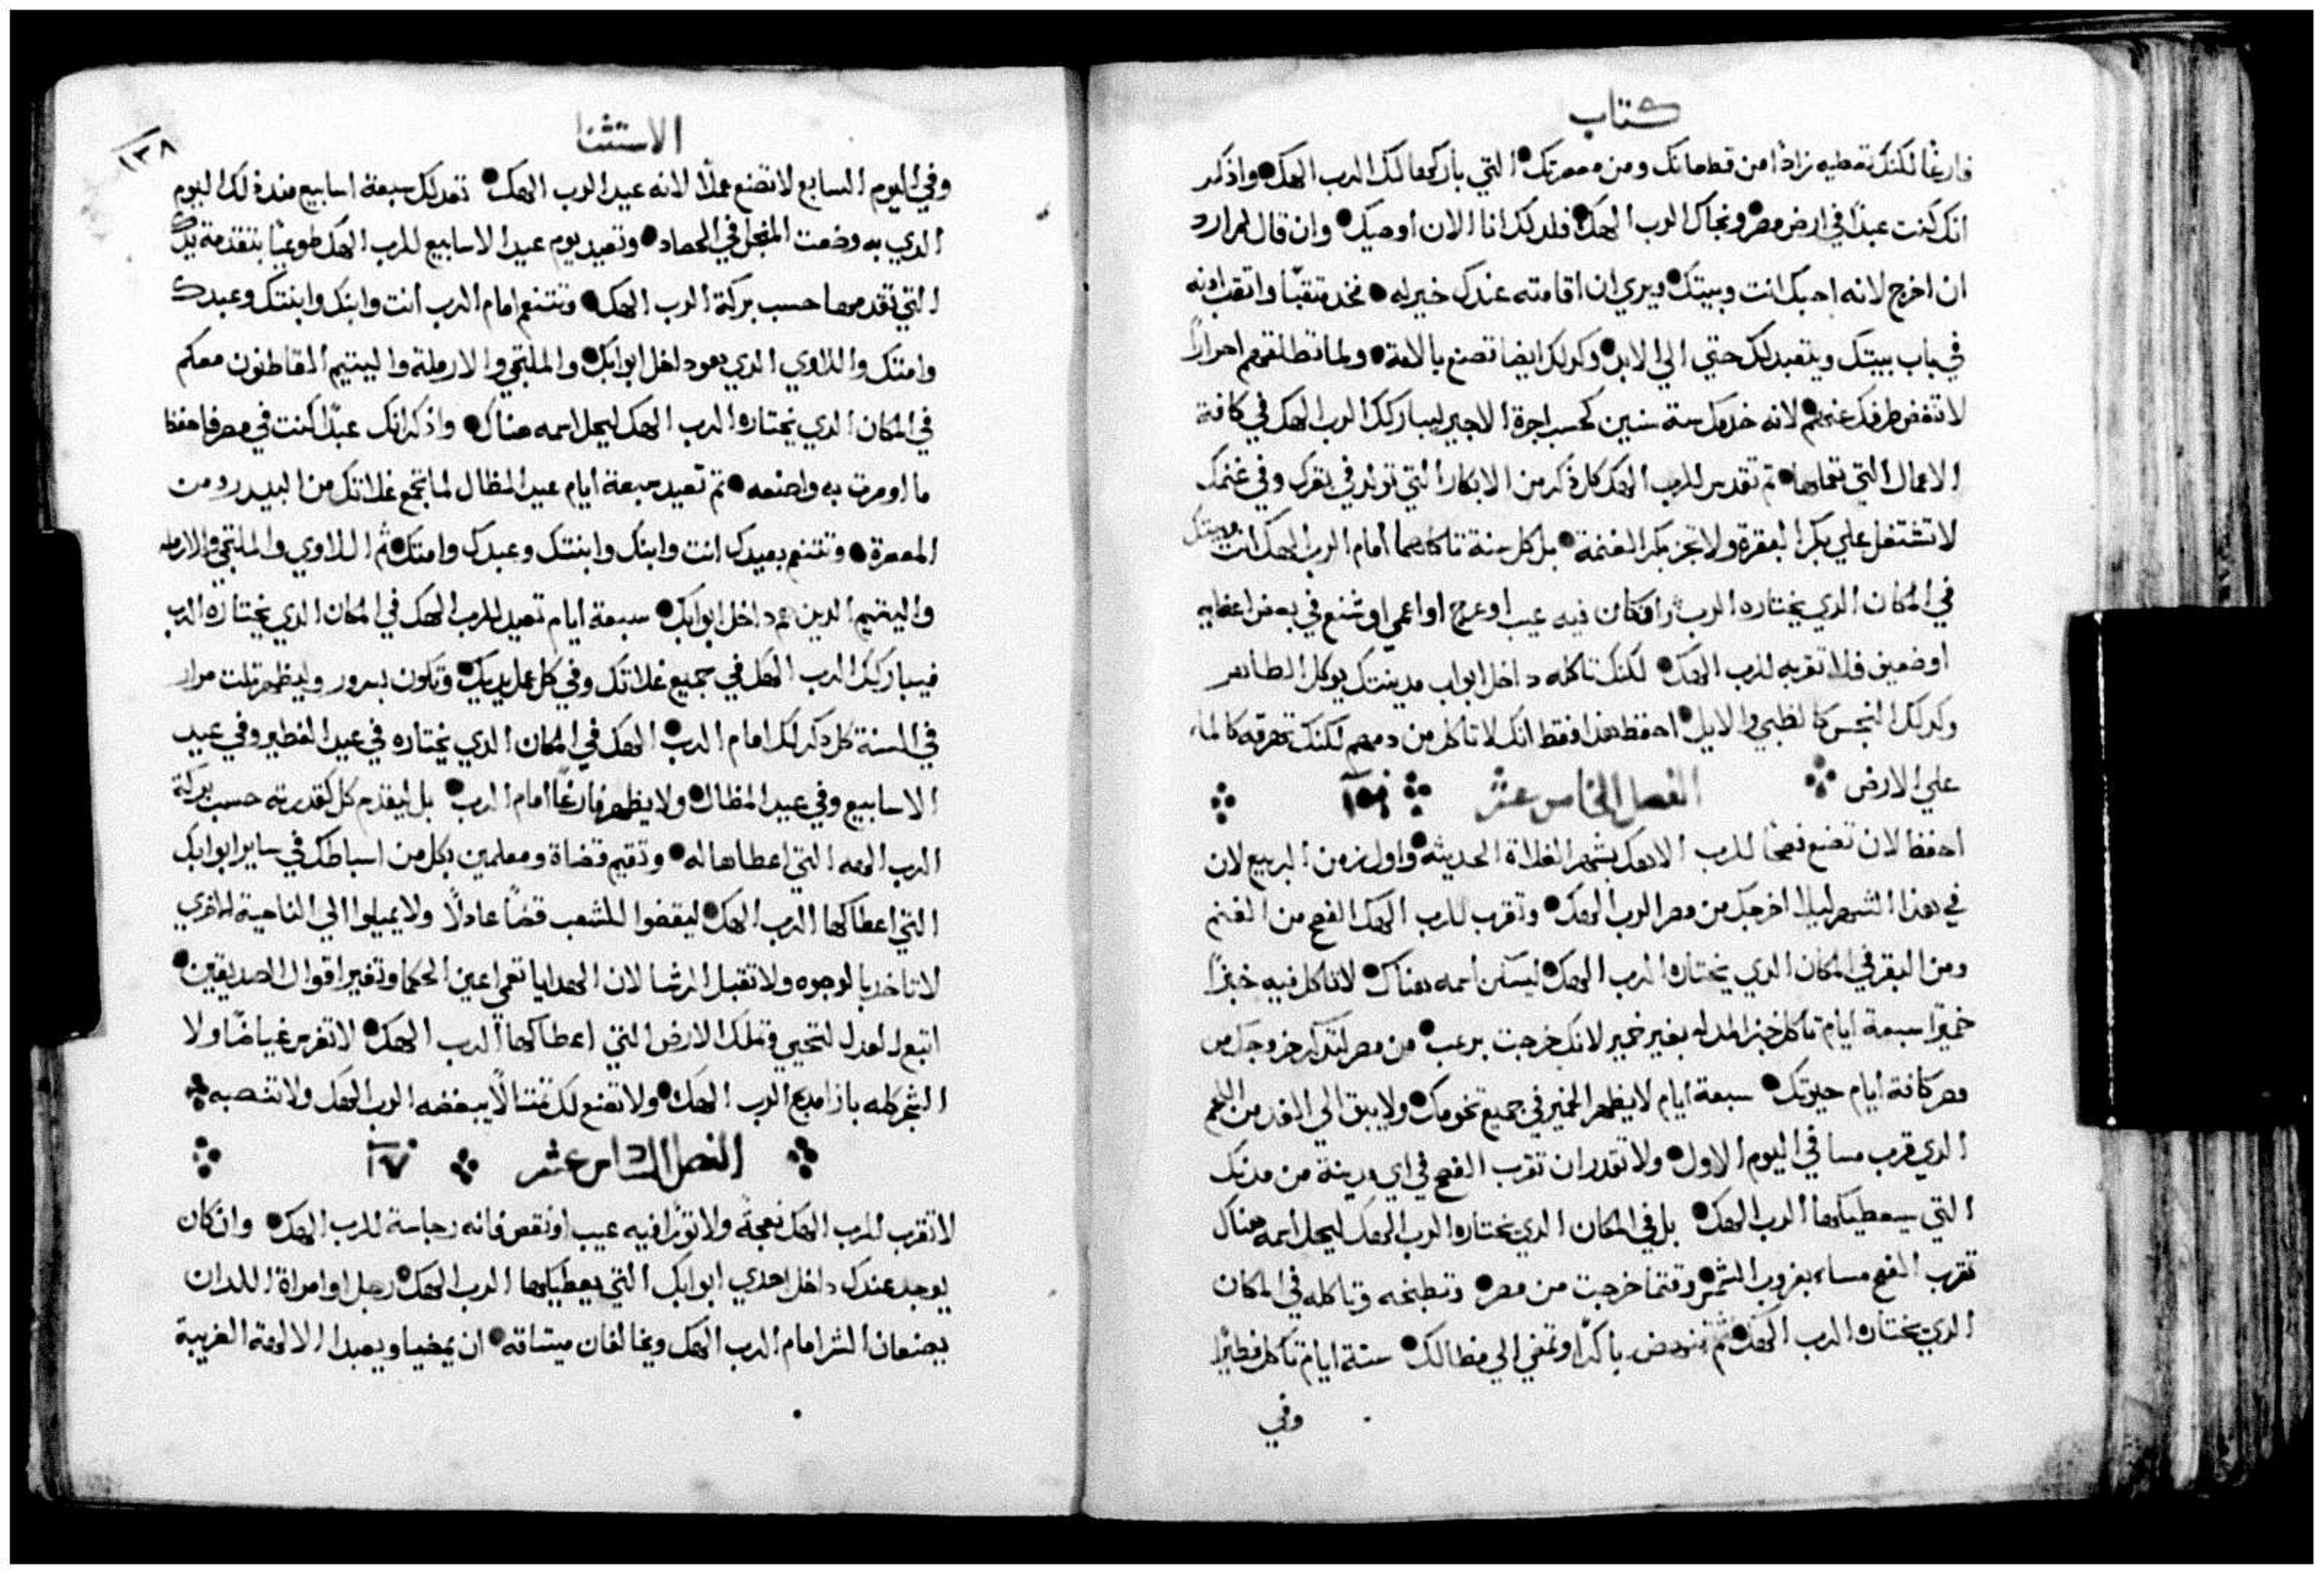 كتاب
فارغًا لكنك تعطيه زادًا من قطعانك ومن معصرتك التي باركها لك الرب الهك واذكر
انك كنت عبدًا في ارض مصر ونجاك الرب الهك فلدلك انا الان اوصيك وان قال لم ارد
ان اخرج لانه احبك انت وبيتك ويري ان اقامته عندك خير له فخد متقبًا واتقب ادنه
في باب بيتك ويتعبد لك حتي الي الابد وكدلك ايضا تصنع بالامة ولما تطلقهم احرارًا
لا تغض طرفك عنهم لانه خدمك ستة سنين كحسب اجرة الاجير ليباركك الرب الهك في كافة
الاعمال التي تعملها ثم تقدس للرب الهك كل ذكر من الابكار التي تولد في بقرك وفي غنمك
لا تشتغل علي بكر البقرة ولا تجز بكر الغنمة بل كل سنة تاكلهما امام الرب الهك انت وبيتك
في المكان الدي يختاره الرب وان كان فيه عيب او عرج او اعمي او شنع في بعض اعضايه
او ضعيف فلا تقربه للرب الهك لكنك تاكله داخل ابواب مدينتك يوكل الطاهر
وكدلك النجس كالظبي والايل احفظ هدا فقط انك لا تاكل من دمهم لكنك تهرقه كالماء
علي الارض الفصل الخامس عشر ١٥٩
احفظ لان تصنع فصحًا للرب الاهك بشهر الغلاة الحديثه واول زمن الربيع لان
في هدا الشهر ليلا اخرجك من مصر الرب الهك وتقرب للرب الهك الفصح من الغنم
ومن البقر في المكان الدي يختاره الرب الهك ليسكن اسمه هناك لا تاكل فيه خبزًا
خميرًا سبعة ايام تاكل خبز المدله بغير خمير لانك خرجت برعب من مصر لتدكر خروجك من
مصر كافة ايام حيوتك سبعة ايام لا يظهر الخمير في جميع تخومك ولا يبق الي الغد من اللحم
الدي قرب مسا في اليوم الاول ولا تقدر ان تقرب الفصح في اي مدينة من مدنك
التي سيعطيكها الرب الهك بل في المكان الدي يختاره الرب الهك ليحل اسمه هناك
تقرب الفصح مساء بغروب الشمس وقتما خرجت من مصر وتطبخه وتاكله في المكان
الدي يختاره الرب الهك ثم تنهض باكرًا وتمضي الي مظالك ستة ايام تاكل فطيرًا
وفي
الاستثنا
١٣٨
وفي اليوم السابع لا تصنع عملًا لانه عيد الرب الهك تعد لك سبعة اسابيع مند دلك اليوم
الدي به وضعت المنجل في الحصاد وتعيد يوم عيد الاسابيع للرب الهك طوعيًا بتقدمة يدك
التي تقدمها حسب بركة الرب الهك وتتنعم امام الرب انت وابنك وابنتك وعبدك
وامتك واللاوي الدي هو داخل ابوابك والملتجي والارملة واليتيم القاطنون معكم
في المكان الدي يختاره الرب الهك ليحل اسمه هناك واذكر انك عبدًا كنت في مصر فاحفظ
ما اومرت به واصنعه ثم تعيد سبعة ايام عيد المظال لما تجمع غلاتك من البيدر ومن
المعصرة وتتنعم بعيدك انت وابنك وابنتك وعبدك وامتك ثم اللاوي والملتجي والارمله
واليتيم الدين هم داخل ابوابك سبعة ايام تعيد للرب الهك في المكان الدي يختاره الرب
فيباركك الرب الهك في جميع غلاتك وفي كل عمل يديك وتكون بسرور وليظهر تلت مرار
في السنة كل دكر لك امام الرب الهك في المكان الدي يختاره في عيد الفطير وفي عيد
الاسابيع وفي عيد المظال ولا يظهر فارغًا امام الرب بل ليقدم كل كقدرته حسب بركة
الرب الهه التي اعطاها له وتقيم قضاة ومعلمين بكل من اسباطك في ساير ابوابك
التي اعطاكها الرب الهك ليقضوا للشعب قضاً عادلًا ولا يميلوا الي الناحية الاخري
لا تاخد بالوجوه ولا تقبل الرشا لان الهدايا تعمي اعين الحكما وتغير اقوال الصديقين
اتبع العدل لتحيي وتملك الارض التي اعطاكها الرب الهك لا تغرس غياضًا ولا
الشجر كله بازا مدبح الرب الهك ولا تصنع لك تمتالًا يبغضه الرب الهك ولا تنصبه
الفصل السادس عشر ١٦٧
لا تقرب للرب الهك نعجةً ولا ثورًا فيه عيب او نقص فانه رجاسة للرب الهك وان كان
يوجد عندك داخل احدي ابوابك التي يعطيكها الرب الهك رجل او امراة اللدان
يصنعان الشر امام الرب الهك ويخالفان ميتاقه ان يمضيا ويعبدا الالهة الغريبة